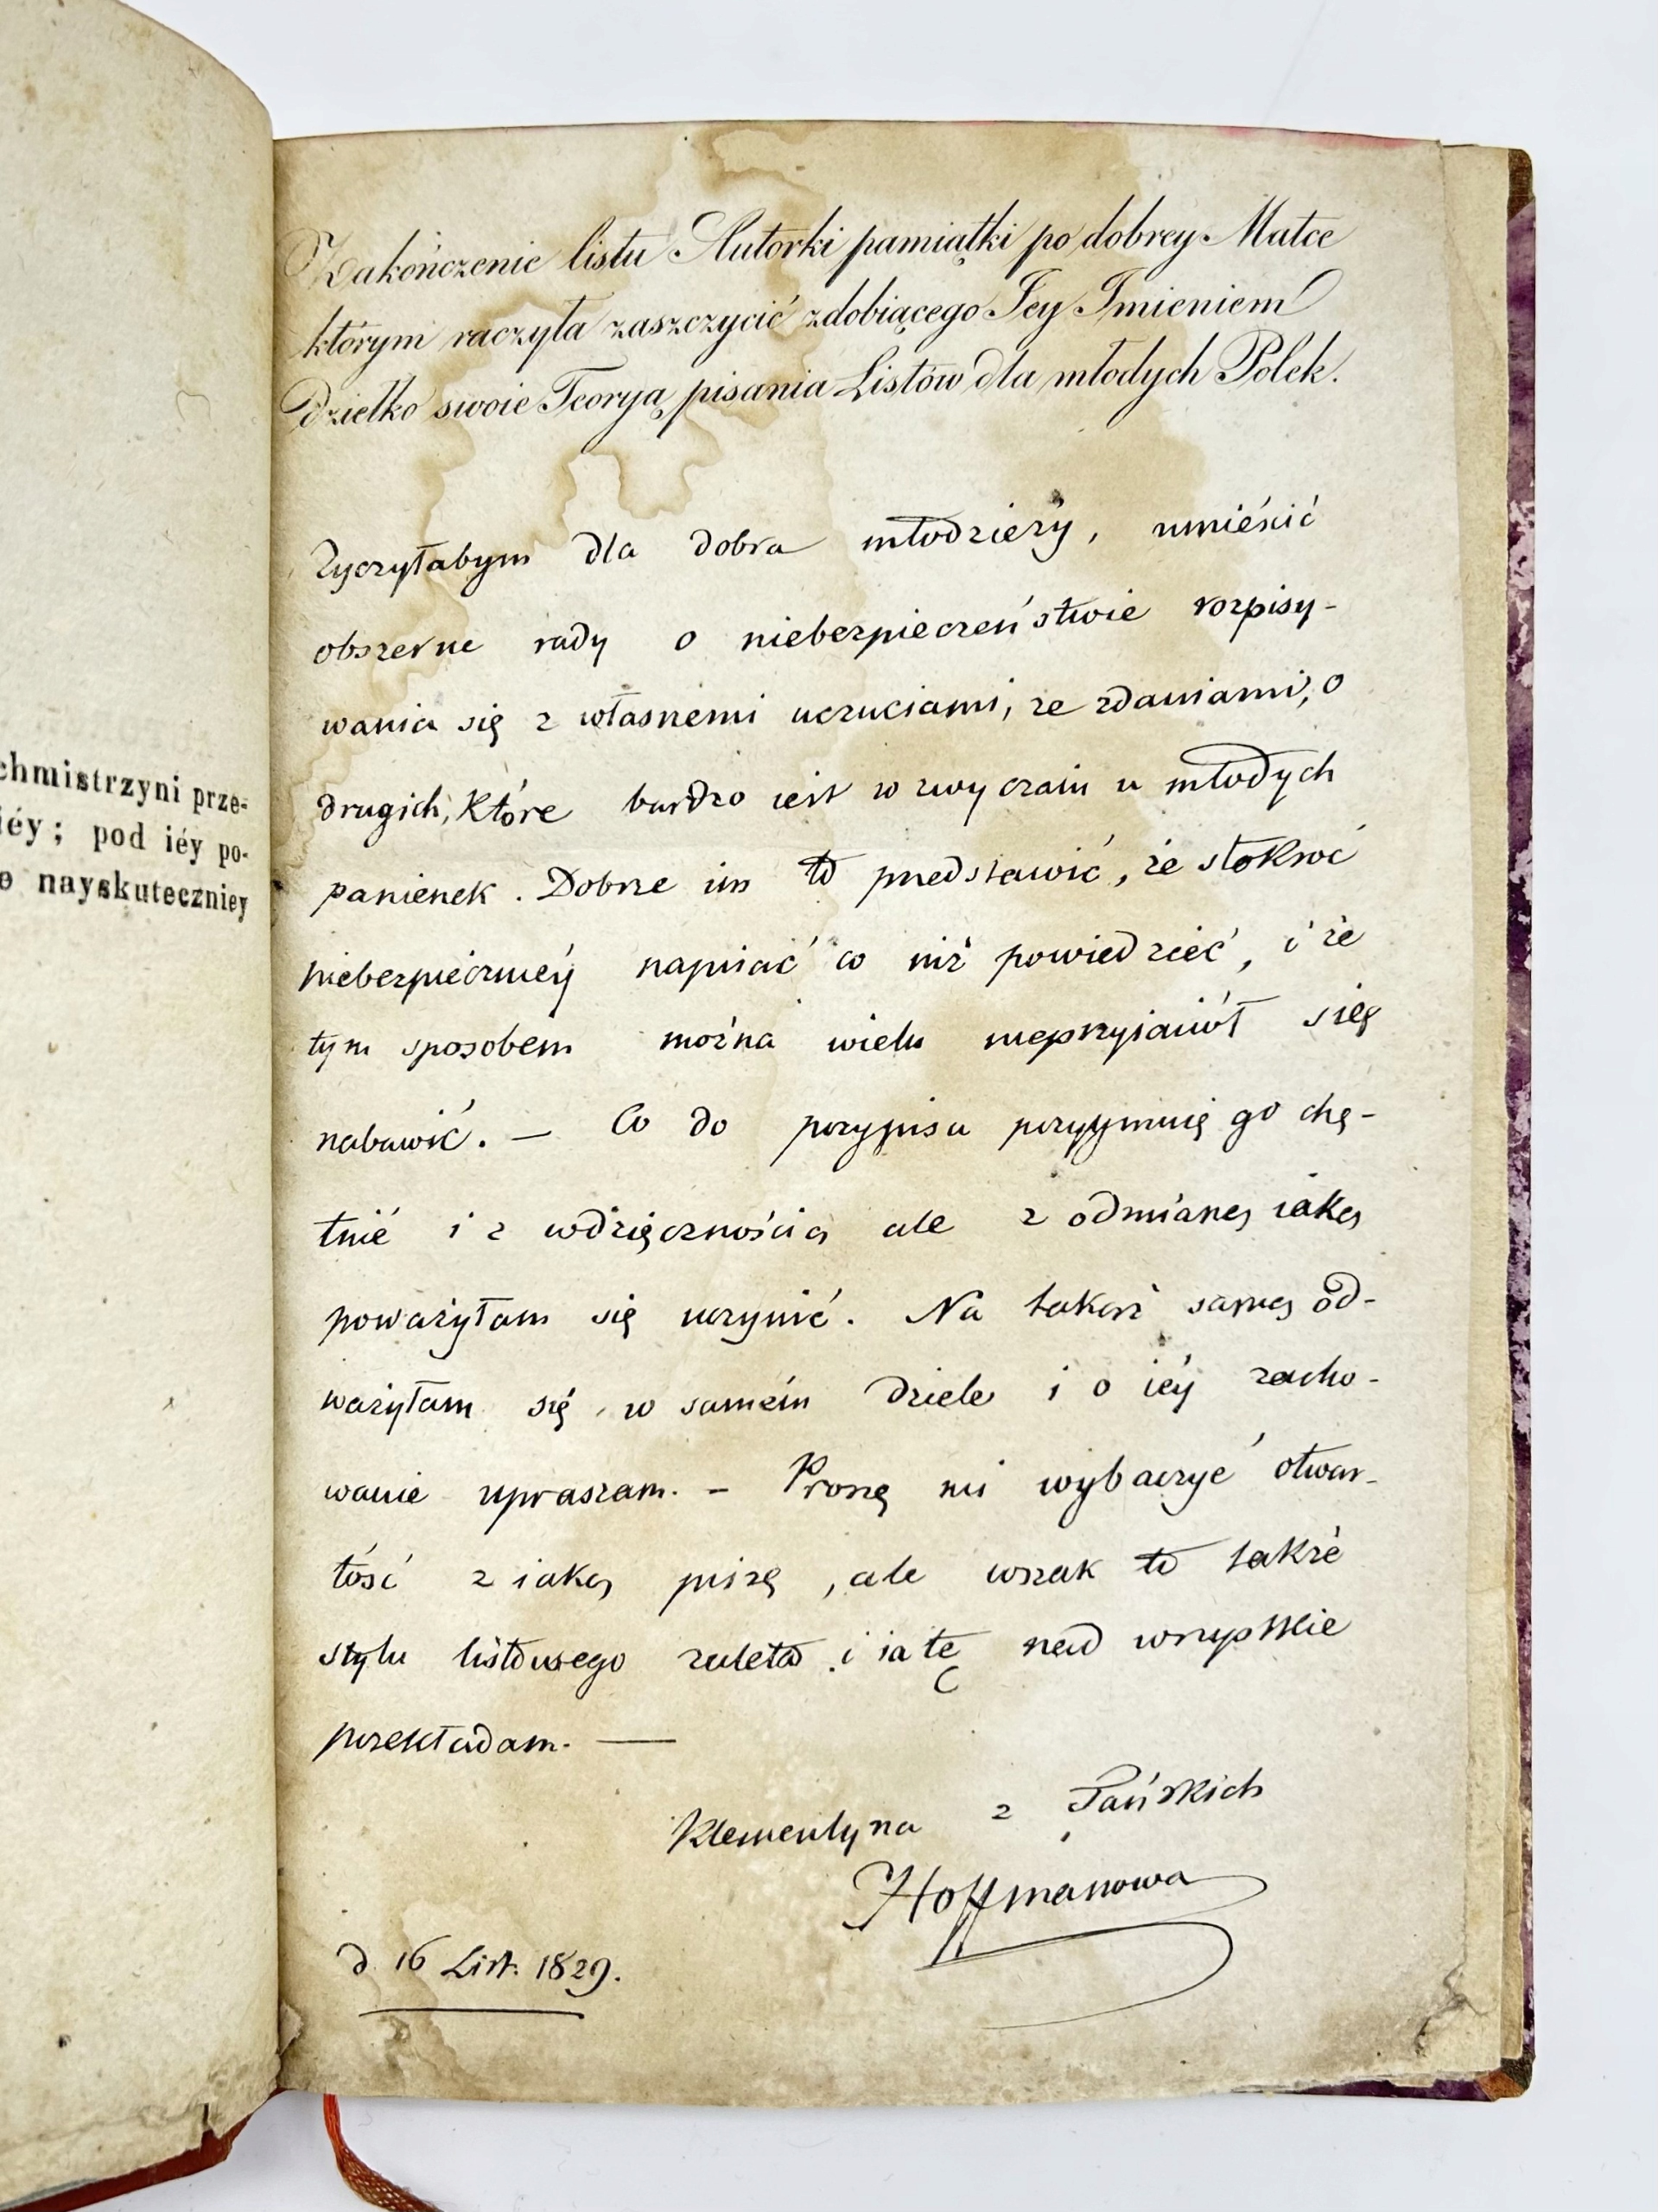 chmistrzyni prze-
iéy; pod iéy po-
o nayskuteczniey
Zakończenie listu Autorki pamiątki po dobrey Matce
którym raczyła zaszczycić zdobiącego Jey Imieniem
dziełko swoie Teoryą pisania Listów dla młodych Polek.
Życzyłabym dla dobra młodzieży, umieścić
obszerne rady o niebezpieczeństwie rozpisy-
wania się z własnemi uczuciami, ze zdaniami, o
drugich, które bardzo iest w zwyczaiu u młodych
panienek. Dobrze im to przedstawić, że stokroć
niebezpiecznieý napisać co niż powiedzieć, i że
tym sposobem można wielu nieprzyiaciół się
nabawić. — Co do przypisu przyymuię go chę-
tnie i z wdzięcznością ale z odmianą iaką
poważyłam się uczynić. Na takąż samą od-
ważyłam się w samém dziele i o iéy zacho-
wanie upraszam. — Proszę mi wybaczyć otwar-
tość z iaką piszę, ale wszak to także
stylu listowego zaleta i ia tę nad wszystkie
przekładam. —
Klementyna z Tańskich
Hoffmanowa
d 16 List. 1829.